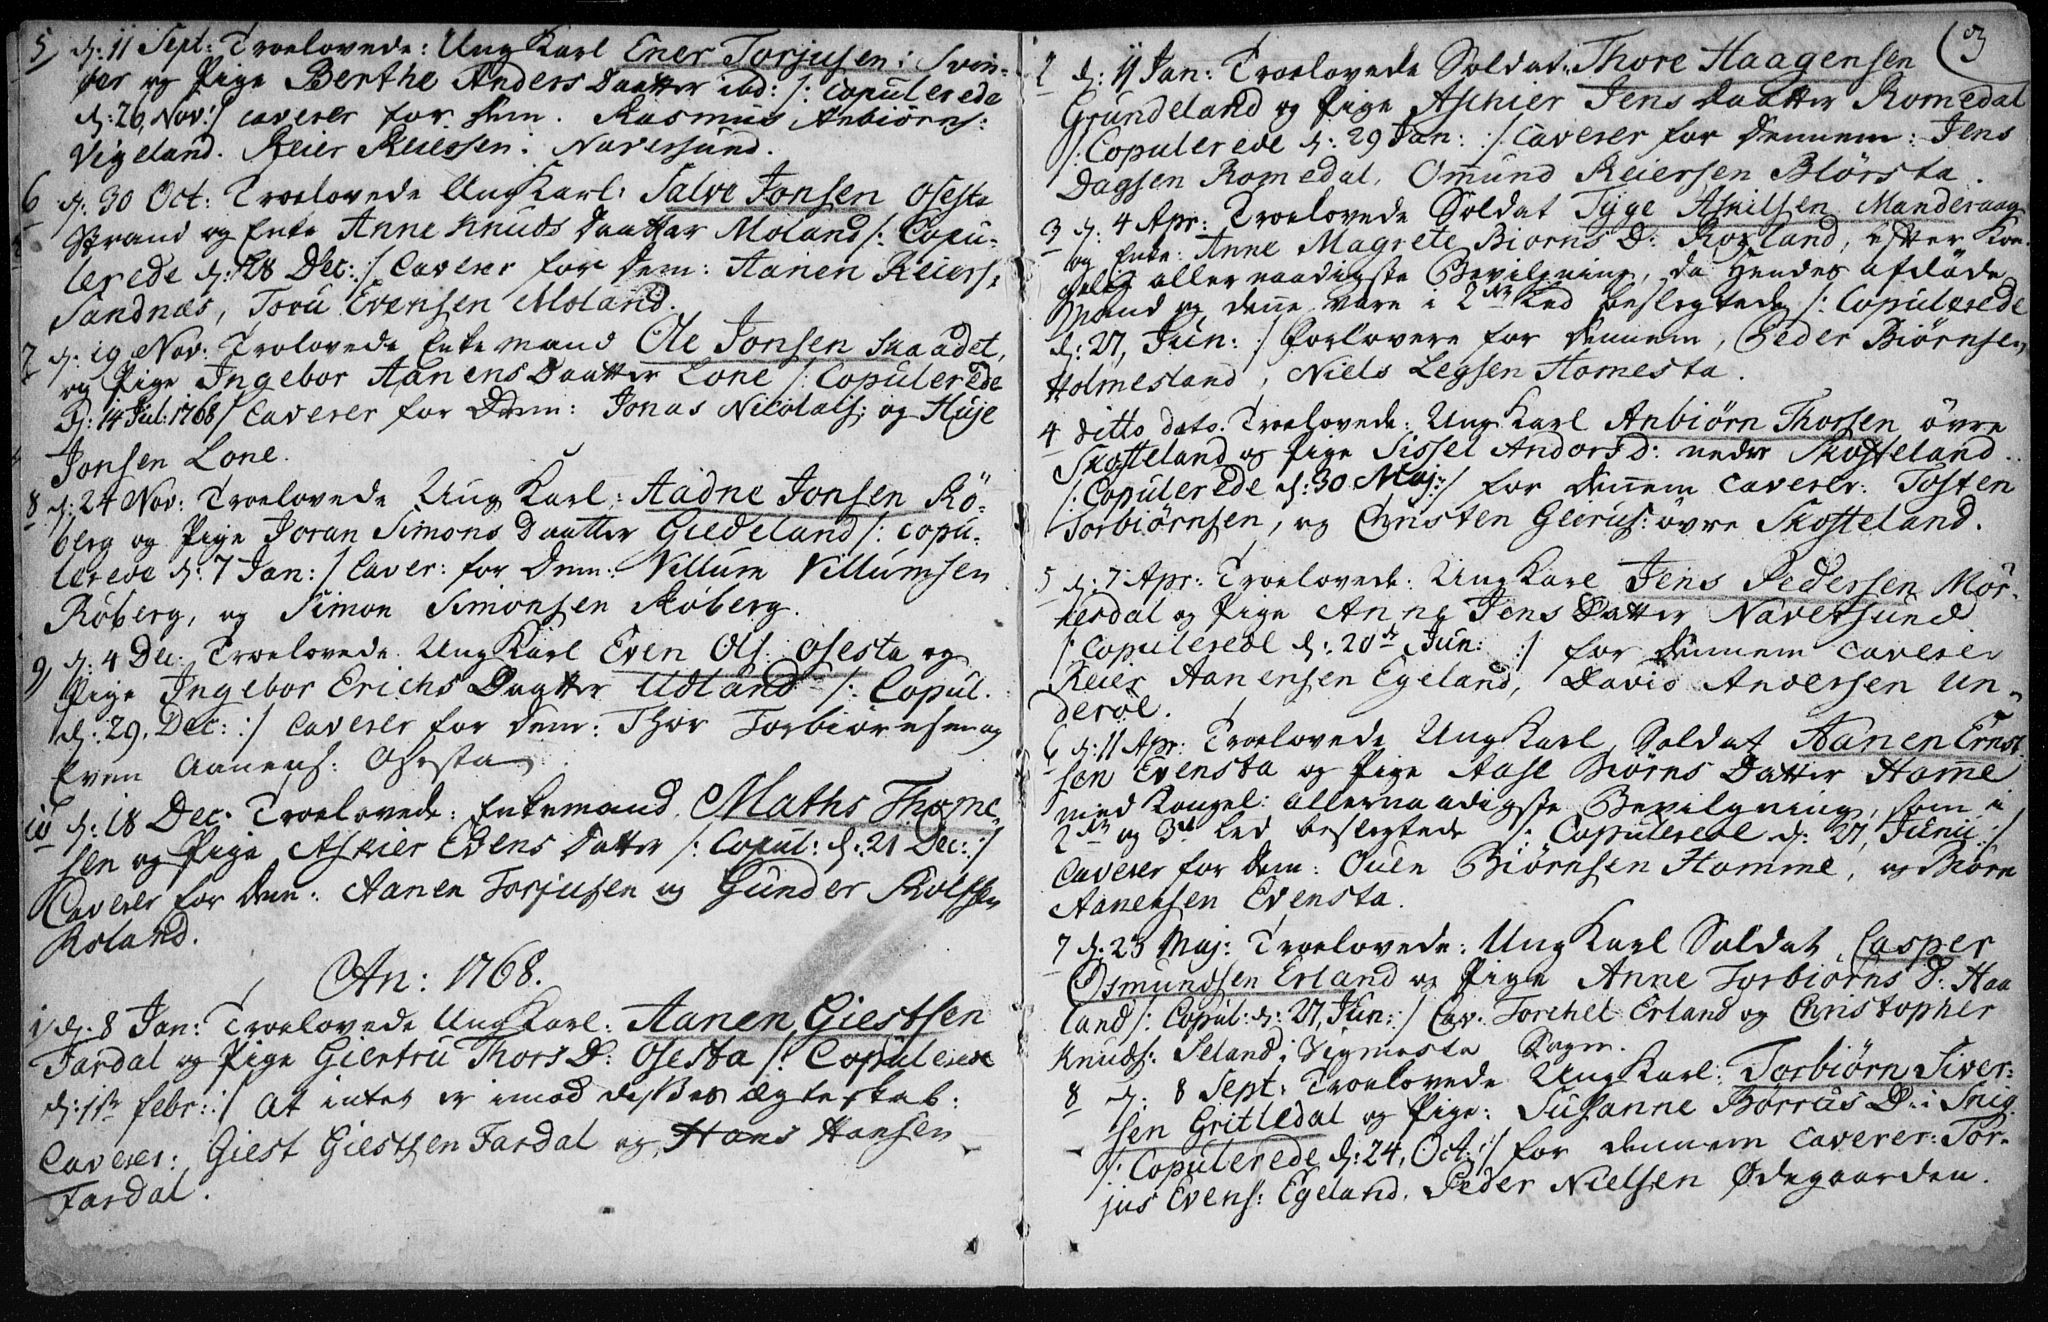 5) d: 11 Sept: Troelovede: Ung Karl Ener Torjusen i Svin-
dør og Pige Berthe Anders Daatter ibd: /: Copulerede
d: 26, Nov: :/ caverer for dem. Rasmus Anbiørns:
Vigeland. Reier Reiersen Naversund.
6 d: 30 Oct: Troelovede Ung Karl: Salve Jonsen Osesta
Strand og Enke Anne Knuds Daatter Moland /: Copu-
lerede d: 28 Dec: :/ Caverer for dem: Aanen Reiers:
Sandnæs, Toru Evensen Moland.
7 d: 19 Nov: Trolovede Enkemand Ole Jonsen Skaadet,
og Pige Ingebor Aanens Daatter Lone /: Copulerede
D: 14 Jul: 1768 :/ Caverer for Dem: Jonas Nicolais: og Huje
Jonsen Lone.
8 d: 24 Nov: Troelovede Ung Karl: Aadne Jonsen Rö-
berg og Pige Joran Simons Daatter Giedeland /: Copu-
lerede d: 7 Jan: :/ Caver: for dem: Villum Villumsen
Röberg, og Simon Simonsen Röberg.
9) d: 4 Dec: Troelovede Ung Karl Even Ols: Osesta og
Pige Ingebor Erichs Daatter Udland /: Copul.
d: 29. Dec: :/ caverer for dem: Thor Torbiörnsen og
Even Aanens: Osesta.
10 d: 18 Dec. Troelovede: Enkemand, Maths Thome-
sen og Pige Aschier Evens Datter /: Copul: d: 21 Dec: :/
Caverer for dem: Aanen Torjusen og Gunder Rolfsen
Roland.
An: 1768.
1 d: 8 Jan: Troelovede Ung Karl: Aanen Giestsen
Fardal og Pige Giertru Thors D: Osesta /: Copulerede
d: 1ste febr: :/ At intet er imod disses ægteskab:
Caverer: Giest Giestsen Fardal og Hans Hansen
Fardal.
3
2 d: 11 Jan: Troelovede Soldat: Thore Haagensen
Grundeland og Pige Aschier Jens Daatter Romedal
/: Copulerede d: 29 Jan: :/ Caverer for dennem: Jens
Dagsen Romedal, Omund Reiersen Blörsta.
3 d: 4 Apr: Troelovede Soldat Tÿge Askilsen Manderaag
og Enke: Anne Magrete Biorns D: Royland, efter Kon-
gelig allernaadigste Bevilgning, da hendes afdöde
Mand og denne vare i 2det Led beslegtede /: Copulerede
d: 27, Jun: :/ Forlovere for dennem, Peder Biörnsen
Holmesland, Niels Legsen Homesta.
4 ditto dato. Troelovede: Ung Karl Anbiörn Thorsen övre
Skofteland og Pige Sissel Andors D: neder Skofteland.
/: Copulerede d: 30 Maj: :/ for dennem caverer: Tosten
Torbiörnsen, og Christen Geerus: övre Skofteland.
5 d: 7 Apr: Troelovede: Ung Karl Jens Pedersen Mör-
kesdal og Pige Anne Jens Datter Naversund
/: Copulerede d: 20de Jun: :/ for dennem caverer
Reier Aanensen Egeland, David Andersen Un-
deröe.
6 d: 11 Apr: Troelovede Ung Karl Soldat Aanen Ernst
sen Evensta og Pige Aase Biörns Datter Home
med Kongel: allernaadigste Bevilgning, som i
2det og 3die Led beslegtede /: Copulerede d: 27, Junii :/
Caverer for dem: Ouen Biörnsen Homme, og Biörn
Aanensen Evensta.
7 d: 23 Maj: Troelovede: Ung Karl Soldat, Casper
Osmundsen Erland og Pige Anne Torbiörns D: Haa
land /: Copul: d: 27, Jun: :/ Cav. Torchel Erland og Christopher
Knuds: Seland i Vigmosta Sogn.
8 d: 8 Sept: Troelovede Ung Karl: Torbiörn Siver-
sen Gritledal og Pige: Susanne Borrus D: i Snig
/: Copulerede d: 24, Oct: :/ for dennem caverer: Tor-
jus Evens: Egeland. Peder Nielsen Ödegaarden.